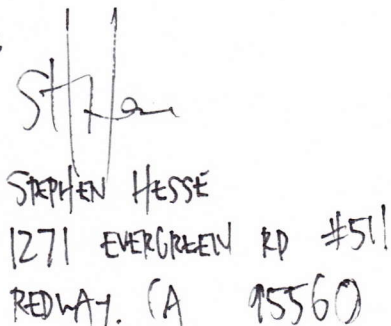 STEPHEN HESSE
1271 EVERGREEN RD #511
REDWAY. CA 95560